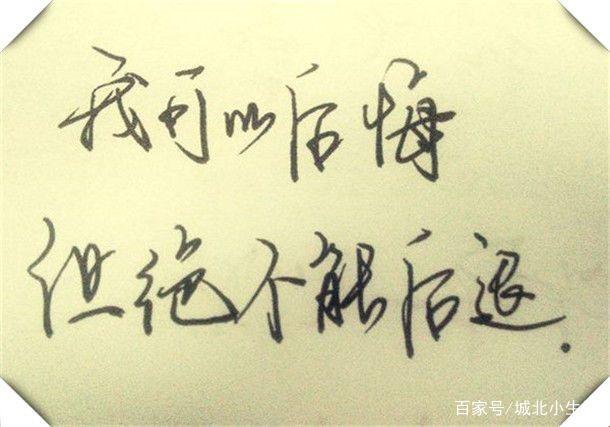 我可以后悔
但绝不能后退.
百家号/城北小生